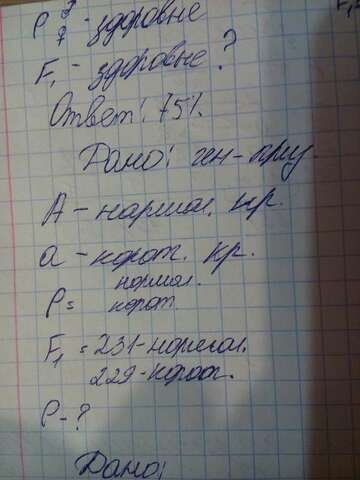 P ♀ - здоровые
♂
F₁ - здоровые?
Ответ: 75%.
Дано: ген-приз.
A - нормал. кр.
a - корот. кр.
нормал.
P = корот.
F₁ = 231 - нормал.
229 - корот.
P - ?
Дано: